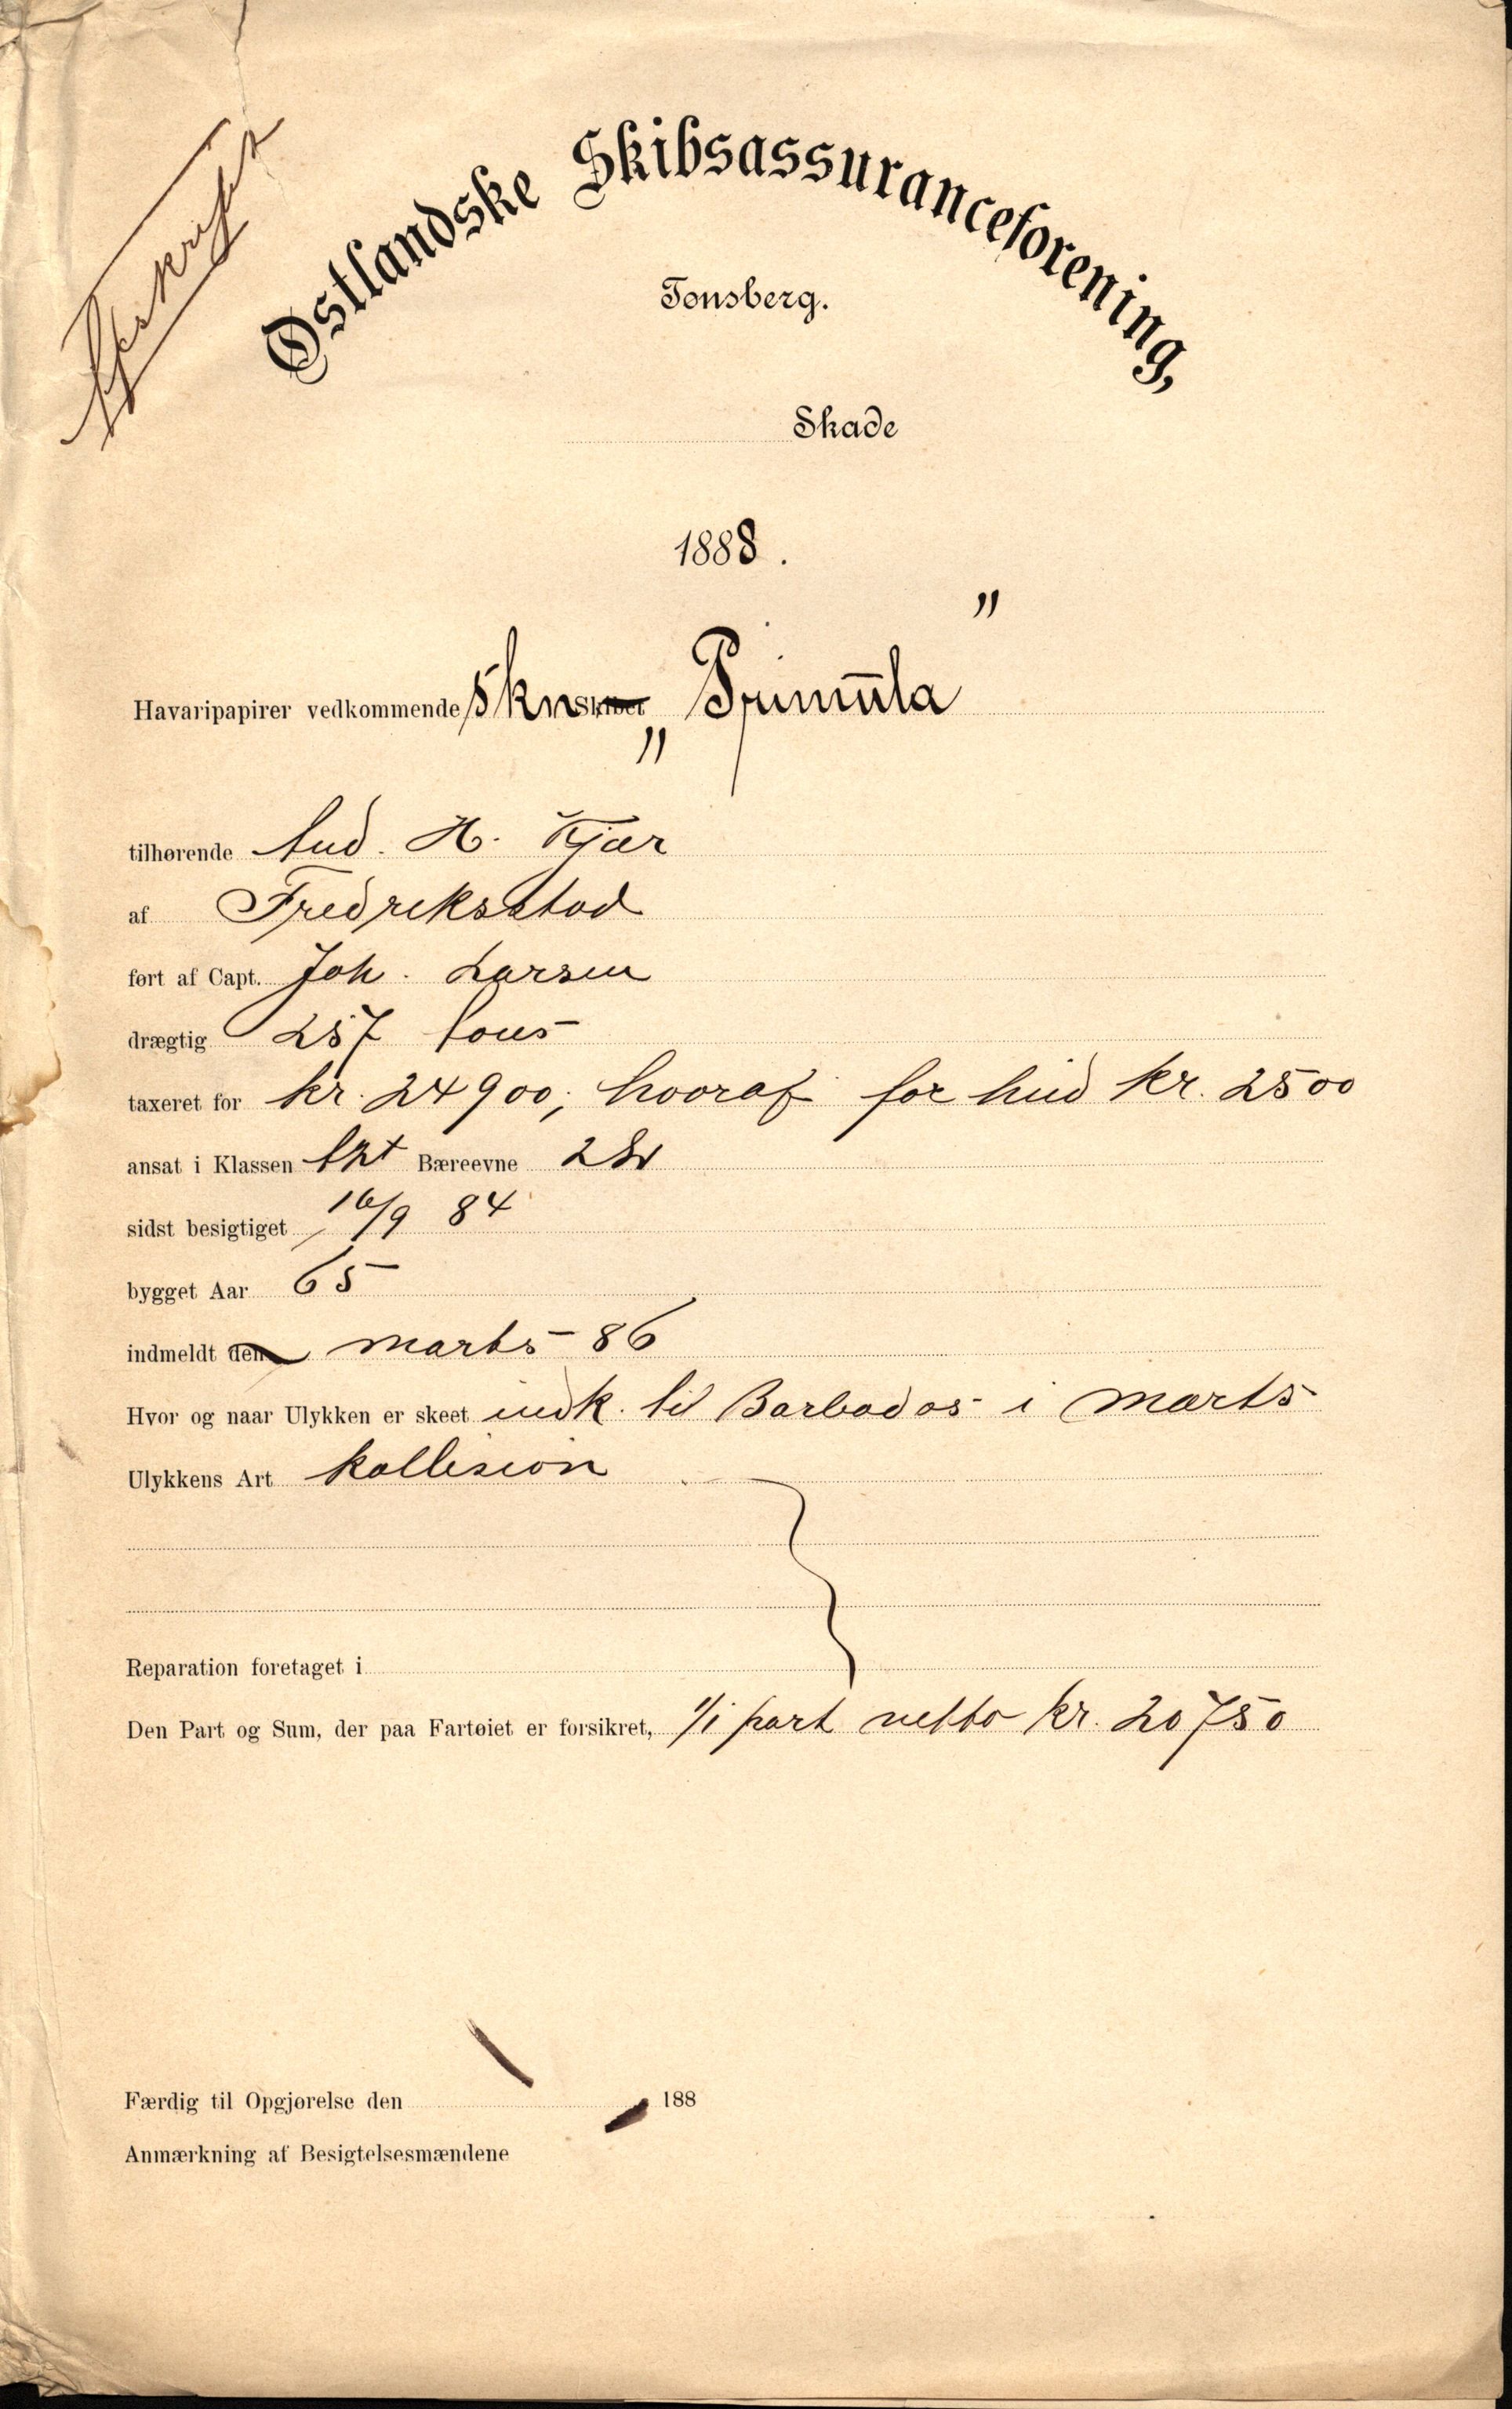 Afskrift
Østlandske Skibsassuranceforening,
Tønsberg.
Skade
1888.
Havaripapirer vedkommende Skn Skibet „Primula"
tilhørende And. H. Kjær
af Fredriksstad
ført af Capt. Joh. Larsen
drægtig 257 tons
taxeret for kr. 24900, hvoraf for hud kr. 2500
ansat i Klassen Bæreevne
sidst besigtiget 16/9 84
bygget Aar 65
indmeldt den marts 86
Hvor og naar Ulykken er skeet indk. til Barbados i marts
Ulykkens Art kollision
Reparation foretaget i
Den Part og Sum, der paa Fartøiet er forsikret, 1/1 part netto kr. 20750
Færdig til Opgjørelse den 188
Anmærkning af Besigtelsesmændene